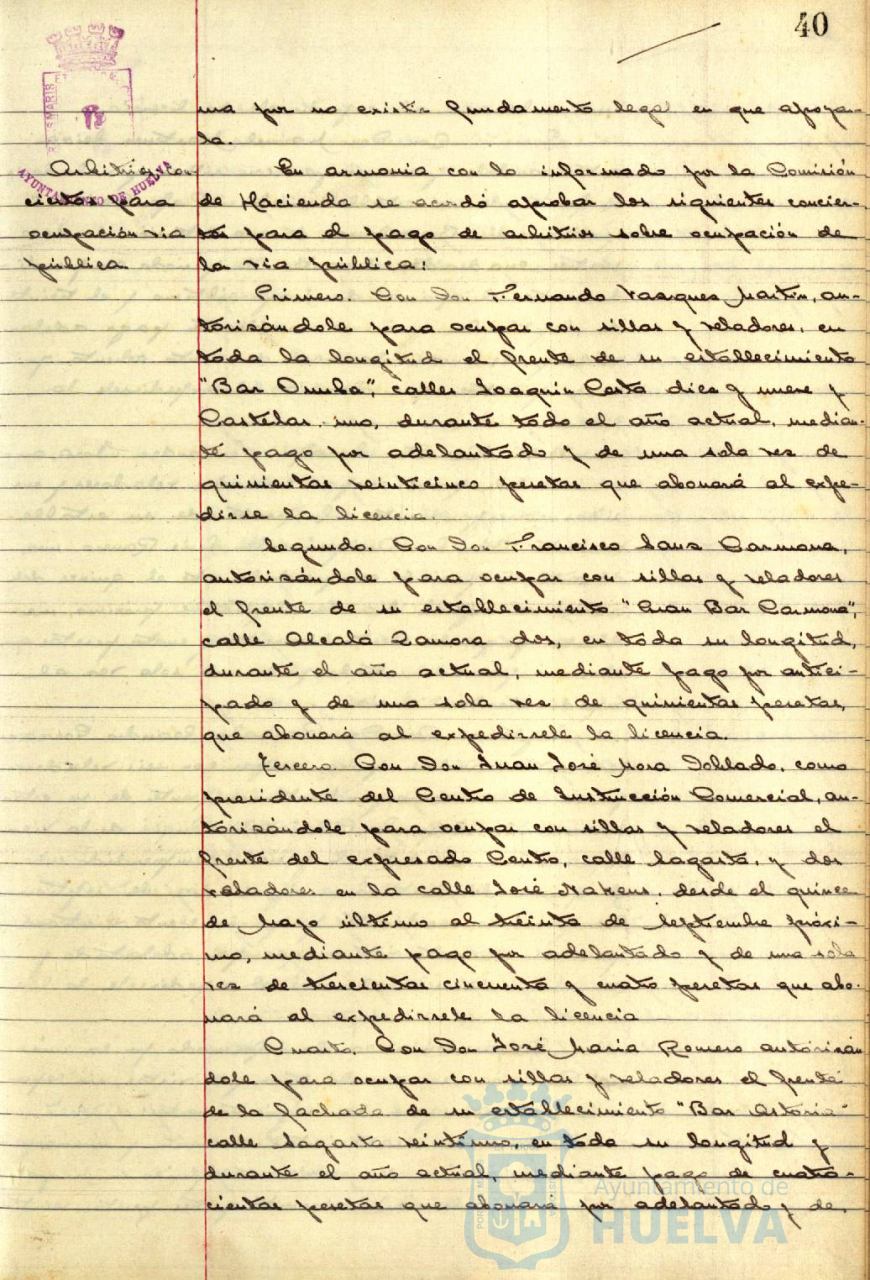 40
ma por no existir fundamento legal en que apoyar-
la.
Arbitrios con-
cierto para
ocupación via
pública
AYUNTAMIENTO DE HUELVA
En armonia con lo informado por la Comisión
de Hacienda se acordó aprobar los siguientes concier-
tos para el pago de arbitrios sobre ocupación de
la via pública:
Primero. Con Don Fernando Vasques Martin, au-
torisándole para ocupar con sillas y veladores, en
toda la longitud el frente de su establecimiento
"Bar Onuba", calles Joaquin Costa dies y nueve y
Castelar uno, durante todo el año actual, median-
te pago por adelantado y de una sola ves de
quinientas veinticinco pesetas que abonará al expe-
dirse la licencia.
Segundo. Con Don Francisco Sans Carmona,
autorisándole para ocupar con sillas y veladores
el frente de su establecimiento "Gran Bar Carmona",
calle Alcalá Zamora dos, en toda su longitud,
durante el año actual, mediante pago por antici-
pado y de una sola ves de quinientas pesetas,
que abonará al expedirsele la licencia.
Tercero. Con Don Juan José Mora Doblado, como
presidente del Centro de Instrucción Comercial, au-
torisándole para ocupar con sillas y veladores el
frente del expresado Centro, calle Sagasta, y dos
veladores en la calle José Nakens, desde el quince
de Mayo último al treinta de Septiembre próxi-
mo, mediante pago por adelantado y de una sola
ves de trescientas cincuenta y cuatro pesetas que abo-
nará al expedirsele la licencia
Cuarto. Con Don José Maria Romero autorisán
dole para ocupar con sillas y veladores el frente
de la fachada de su establecimiento "Bar Astoria"
calle Sagasta veintiuno, en toda su longitud y
durante el año actual, mediante pago de cuatro-
cientas pesetas que abonará por adelantado y de
Ayuntamiento de
HUELVA